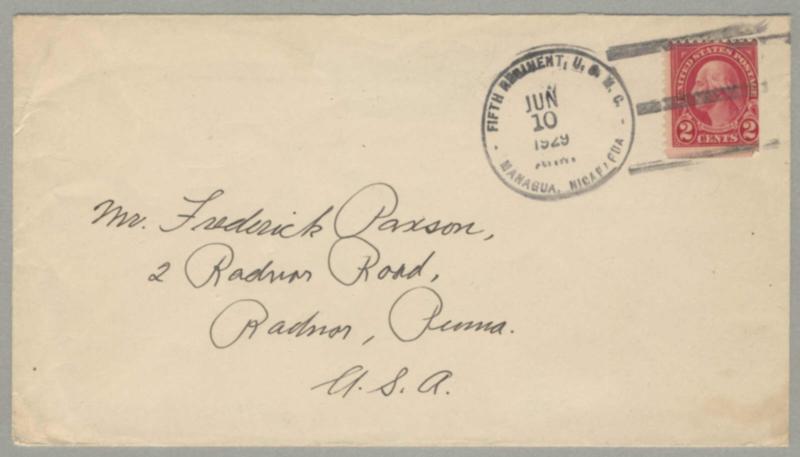 FIFTH REGIMENT, U. S. M. C.
JUN
10
1929
MANAGUA, NICARAGUA
UNITED STATES POSTAGE
2 CENTS 2
Mr. Frederick Paxson,
2 Radnor Road,
Radnor, Penna.
U.S.A.